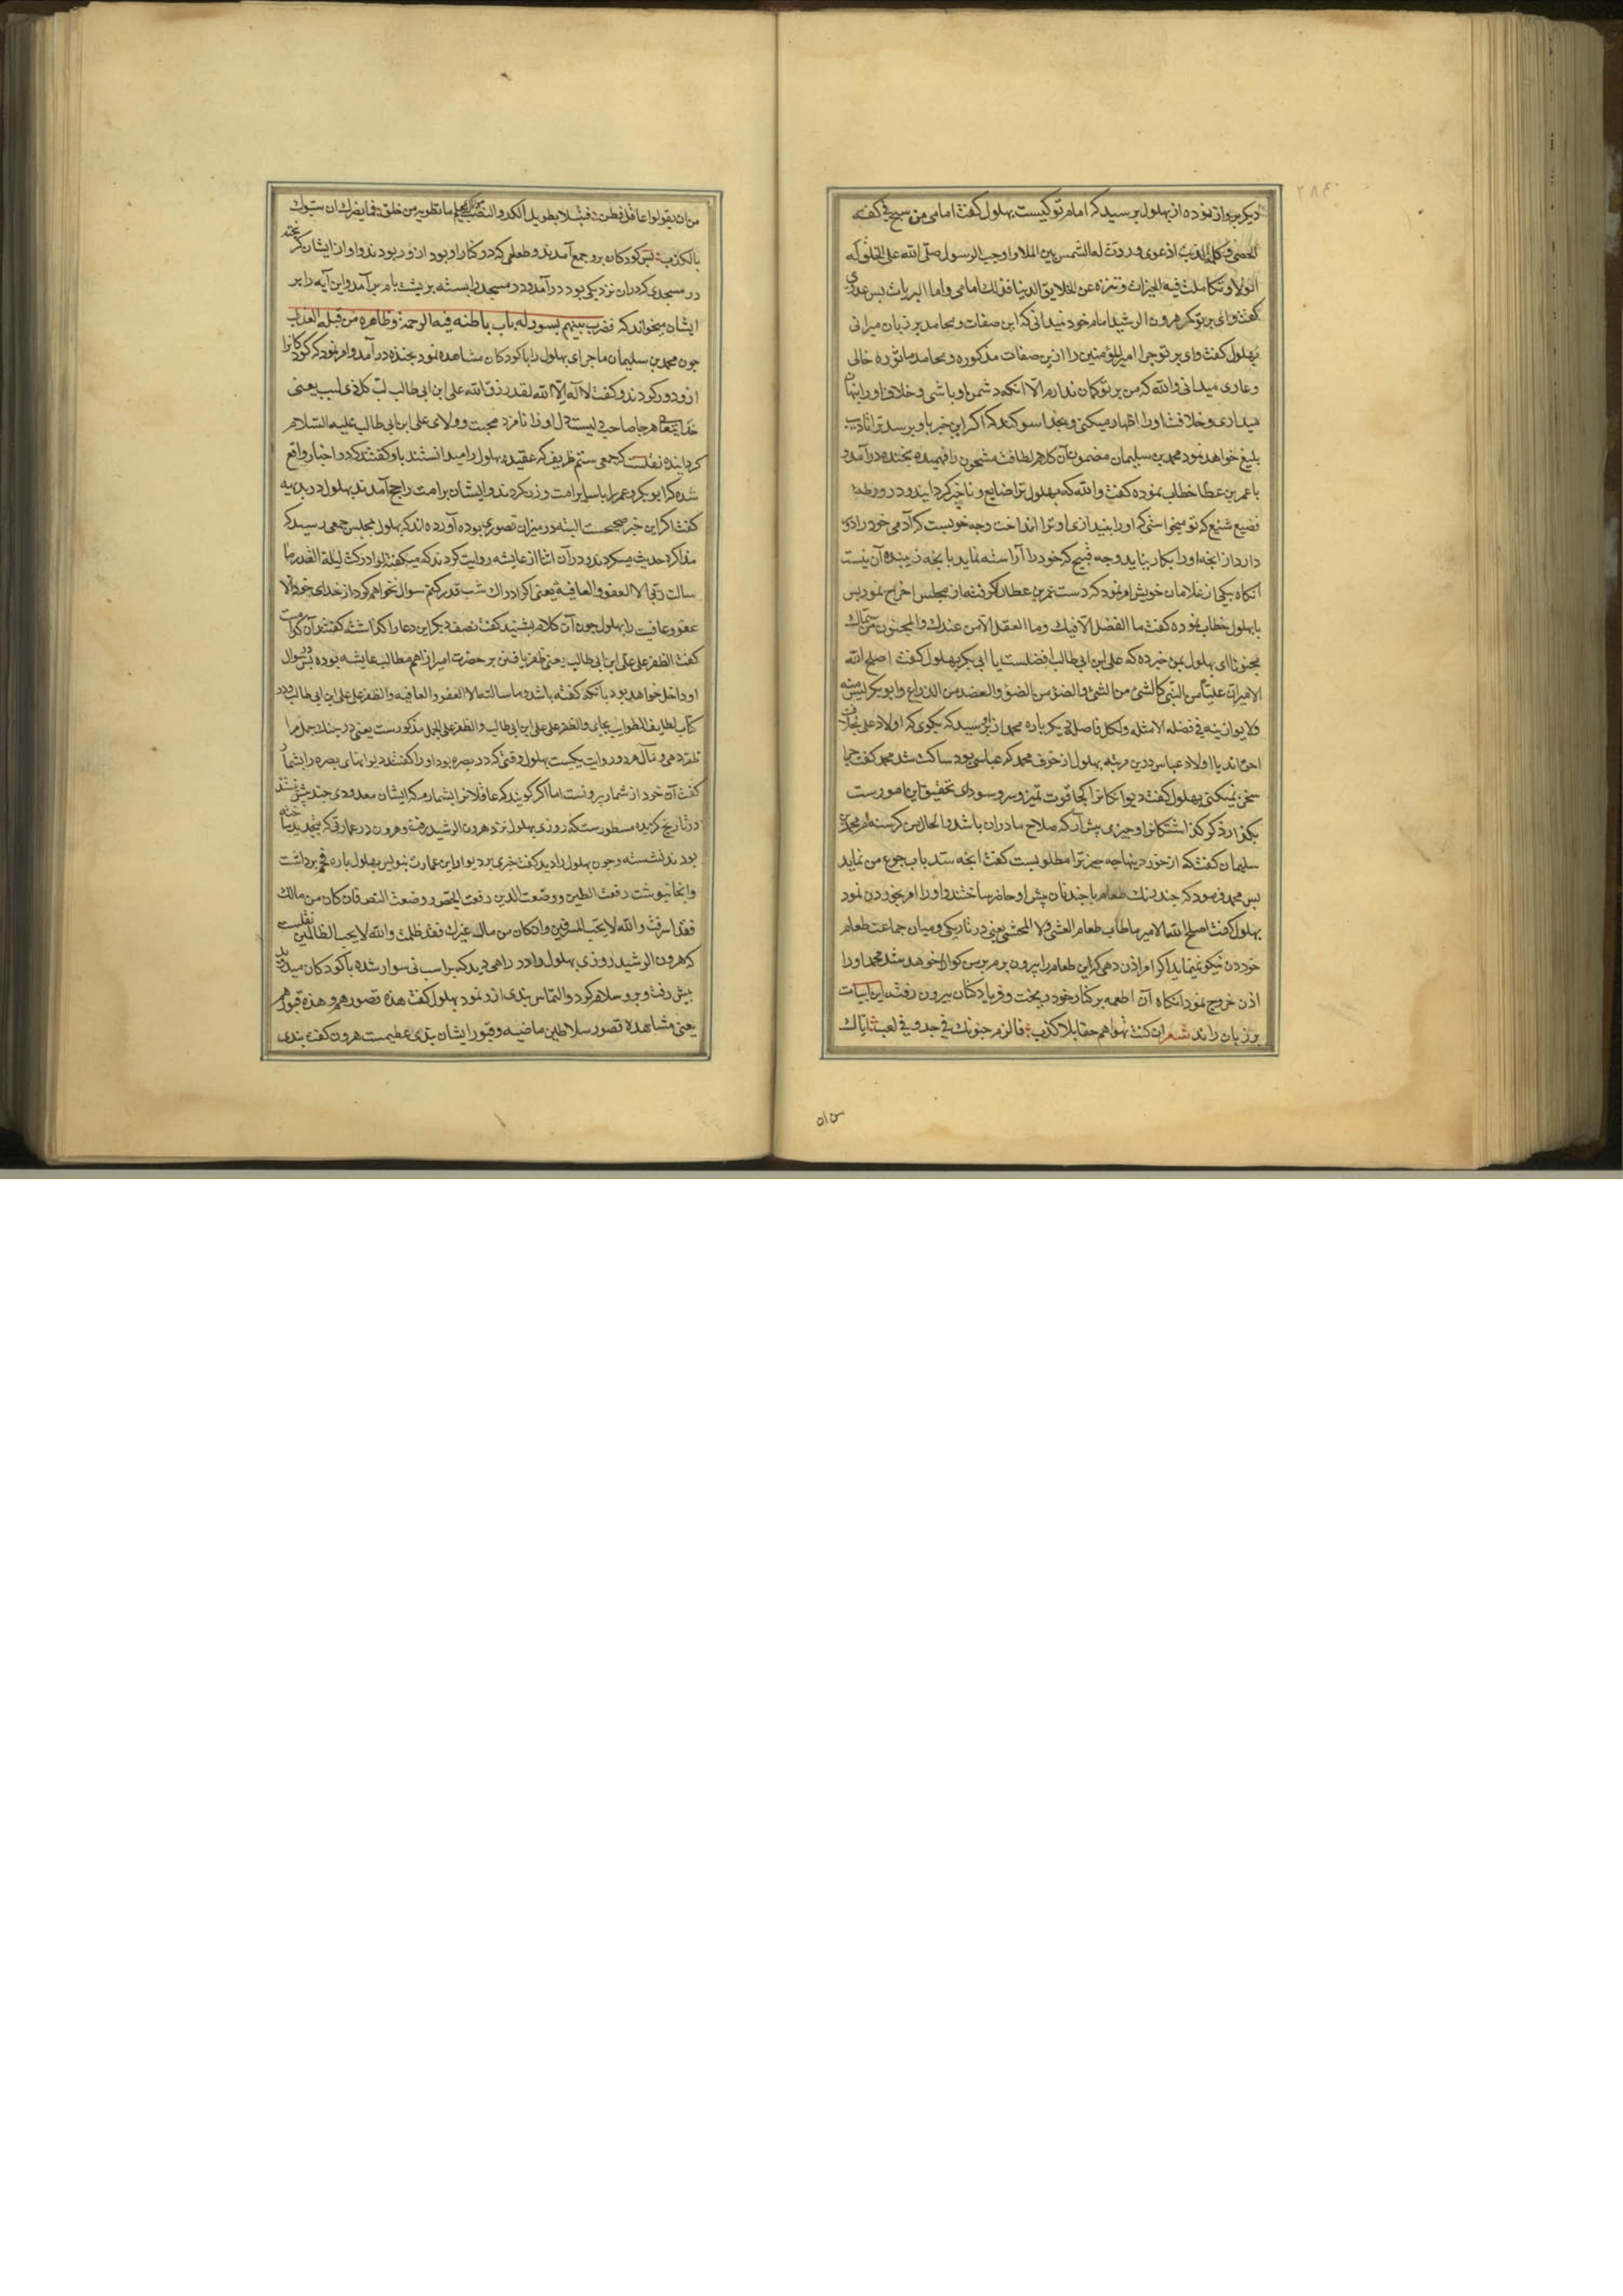 دیکر بروانموده از بهلول پرسید که امام تو کیست بهلول کفت امامی من سبح فی کفه
الحصی و کلمه الذیب اذ عوی و ردت له الشمس بین الملا و اوجب الرسول صلی الله علی الخلق له
الولا و تکاملت فیه الخیرات و تنزه عن الخلایق الدنیا فذلک امامی و امام البریات پس عدوی
کفت وای بر تو مکر هرون الرشید امام خود نمیدانی که این صفات و محامد بر زبان میرانی
بهلول کفت وای بر تو چرا امیر المؤمنین را ازین صفات مذکوره و محامد ماثوره خالی
و عاری میدانی والله که من بر تو کمان ندارم الا انکه دشمن او باشی و خلاف او را پنهان
میداری و خلافت او را اظهار میکنی و بخدا سوکند که اکر این خبر باو برسد ترا تادیب
بلیغ خواهد نمود محمد بن سلیمان مضمون آن کلام لطافت مشحون را فهمیده بخنده درآمد و
با عمر بن عطا خطاب نموده کفت والله که بهلول ترا ضایع و ناچیز کردانید و در ورطه
فضیع شنیع که تو میخواستی که او را بیندازی او ترا انداخت وجه خوبست که آدمی خود را دور
دارد از انچه او را بکار نیاید و چه قبیح که خود را آراسته نماید بانچه زیبنده آن نیست
انکاه بیکی از غلامان خویش امر نمود که دست عمر بن عطا را کرفته از مجلس اخراج نمود پس
با بهلول خطاب نموده کفت ما الفضل الا فیک وما العقل الا من عندک والمجنون من سماک
مجنونا ای بهلول بمن خبر ده که علی ابن ابی طالب افضلست یا ابی بکر بهلول کفت اصلح الله
الامیر ان علیا من النبی کالشئ من الشئ والضؤ من الضؤ والعضد من الذراع و ابو بکر لیس منه
ولا یوازینه فی فضله الا مثله ولکل فاضل دیکر باره محمد از او پرسید که بکوی که اولاد علی بخلافت
احق اند یا اولاد عباس درین مرتبه بهلول از خوف محمد که عباسی بود ساکت شد محمد کفت چرا
سخن نمیکنی بهلول کفت دیوانکانرا کجا قوت تمیز و سر و سودای تحقیق این امورست
بکذار ذکر کذاشتکانرا و چیزی پیش آر که صلاح ما دران باشد و الحال من کرسنه ام محمد بن
سلیمان کفت که از خوردنیها چه چیز ترا مطلوبست کفت انچه سد باب جوع من نماید
پس محمد فرمود که چند رنک طعام با چند نان پیش او حاضر ساختند و او را امر بخوردن نمود
بهلول کفت اصلح الله الامیر ما طاب طعام العشی ولا المحشی یعنی در تاریکی و میان جماعت طعام
خوردن نیکو نمینماید اکر امر اذن دهی که این طعام را بیرون برم بر من کوارا خواهد شد محمد او را
اذن خروج نمود انکاه آن اطعمه بر کنار خود ریخت و فریاد کنان بیرون رفت این ابیات
بر زبان راند شعر ان کنت تهواهم حقا بلا کذب فالزم جنونک فی جد و فی لعب ایاک
من ان یقولوا عاقل فطن فتبتلا بطویل الکد والنصب مولاک یعلم ما تطویه من خلق فما یضرک ان سبوک
بالکذب پس کودکان برو جمع آمدند و طعامی که در کنار او بود ازو ربودند و او از ایشان کریخته
در مسجدی که دران نزدیکی بود درآمد و در مسجد را بسته بر پشت بام برآمد و این آیه را بر
ایشان میخواند که فضرب بینهم بسور له باب باطنه فیه الرحمة وظاهره من قبله العذاب
چون محمد بن سلیمان ماجرای بهلول را با کودکان مشاهده نمود بخنده درآمد و امر نمود که کودکانرا
ازو دور کردند و کفت لا اله الا الله لقد رزق الله علی ابن ابی طالب لب کل ذی لب یعنی
خدایتعالی هرجا صاحب دلیست دل او را نامزد محبت و ولای علی ابن ابی طالب علیه السلام
کردانیده نقلست که جمعی ستم ظریف که عقیده بهلول را میدانستند باو کفتند که در اخبار واقع
شده که ابو بکر و عمر را با سایر امت وزن کردند و ایشان بر امت راجح آمدند بهلول در بدیهه
کفت اکر این خبر صحیحست البته در میزان قصوری بوده آورده اند که بهلول بمجلس جمعی رسید که
مذاکره حدیث میکردند و در آن اثنا از عایشه روایت کردند که میکفت لو ادرکت لیلة القدر ما
سالت ربی الا العفو والعافیة یعنی اکر ادراک شب قدر کنم سوال نخواهم کرد از خدای خود الا
عفو و عافیت را بهلول چون آن کلام بشنید کفت نصف دیکر این دعا را کذاشته کفتند آن کدامست
کفت الظفر علی علی ابن ابی طالب یعنی ظفر یافتن بر حضرت امیر از اهم مطالب عایشه بوده پس در سوال
او داخل خواهد بود بانکه کفته باشد و ما سالت الا العفو والعافیه والظفر علی علی ابن ابی طالب و در
کتاب لطایف الطوایف بجای والظفر علی علی ابن ابی طالب والظفر علی الجمل مذکورست یعنی در جنک جمل مرا
ظفر دهی و مآل هر دو روایت یکیست بهلول وقتی که در بصره بود او را کفتند دیوانهای بصره را بشمار
کفت آن خود از شمار بیرونست اما اکر کویند که عاقلانرا بشمار میکم ایشان معدودی چند بیش نیستند
در تاریخ کزیده مسطورست که روزی بهلول نزد هرون الرشید رفت و هرون در عمارتی که بتجدید ساخته
بودند نشسته و چون بهلول را دید کفت چیزی بر دیوار این عمارت بنویس بهلول پاره فحم برداشت
و انجا نوشت رفعت الطین و وضعت الدین رفعت الجص و وضعت النص فان کان من مالک
فقد اسرفت والله لا یحب المسرفین وان کان من مال غیرک فقد ظلمت والله لا یحب الظالمین نقلست
که هرون الرشید روزی بهلول را در راهی دید که بر اسب نی سوار شده با کودکان میدوید
پیش رفت و برو سلام کرد و التماس پندی ازو نمود بهلول کفت هذه قصورهم و هذه قبورهم
یعنی مشاهده قصور سلاطین ماضیه و قبور ایشان پندی عظیمست هرون کفت پندی